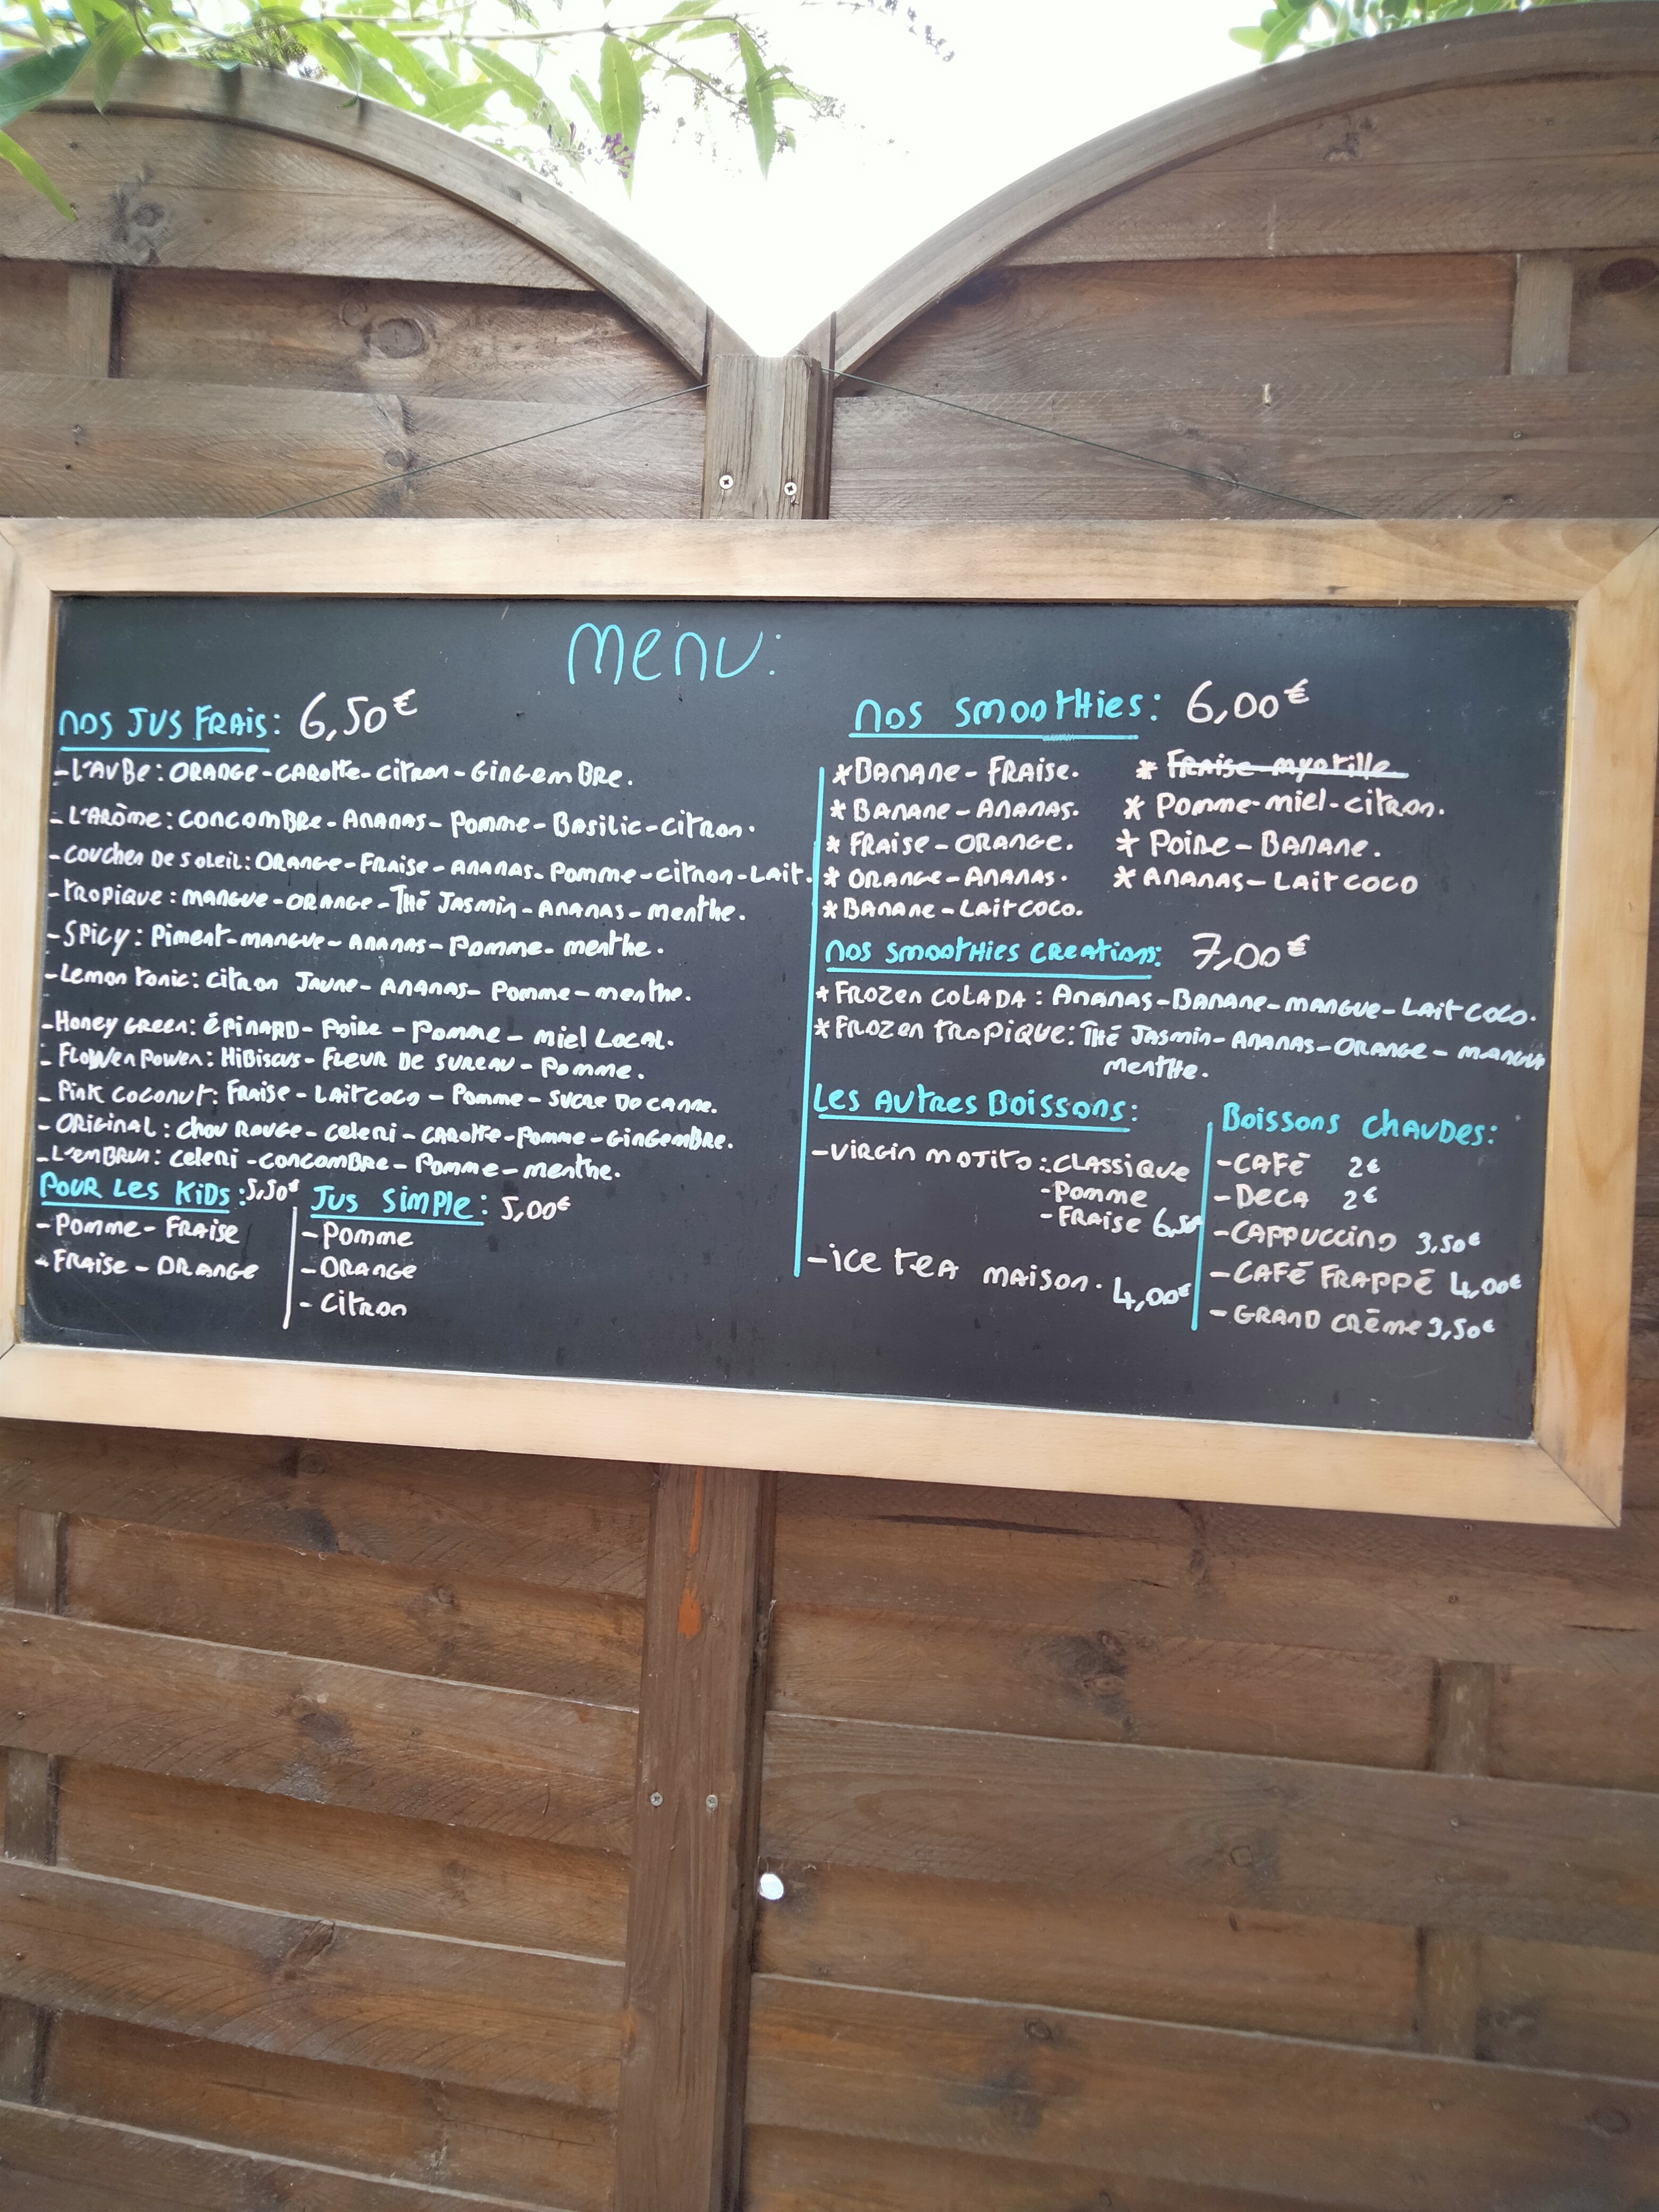 MENU:
NOS JUS FRAIS: 6,50€
- L'AUBE: ORANGE - CAROTTE - CITRON - GINGEMBRE.
- L'ARÔME: CONCOMBRE - ANANAS - POMME - BASILIC - CITRON.
- COUCHER DE SOLEIL: ORANGE - FRAISE - ANANAS - POMME - CITRON - LAIT.
- TROPIQUE: MANGUE - ORANGE - THÉ JASMIN - ANANAS - MENTHE.
- SPICY: PIMENT - MANGUE - ANANAS - POMME - MENTHE.
- LEMON TONIC: CITRON JAUNE - ANANAS - POMME - MENTHE.
- HONEY GREEN: ÉPINARD - POIRE - POMME - MIEL LOCAL.
- FLOWER POWER: HIBISCUS - FLEUR DE SUREAU - POMME.
- PINK COCONUT: FRAISE - LAIT COCO - POMME - SUCRE DE CANNE.
- ORIGINAL: CHOU ROUGE - CELERI - CAROTTE - POMME - GINGEMBRE.
- L'EMBRUN: CELERI - CONCOMBRE - POMME - MENTHE.
POUR LES KIDS: 5,50€
- POMME - FRAISE
- FRAISE - ORANGE
JUS SIMPLE: 5,00€
- POMME
- ORANGE
- CITRON
NOS SMOOTHIES: 6,00€
* BANANE - FRAISE.
* BANANE - ANANAS.
* FRAISE - ORANGE.
* ORANGE - ANANAS.
* BANANE - LAIT COCO.
* FRAISE - MYRTILLE
* POMME - MIEL - CITRON.
* POIRE - BANANE.
* ANANAS - LAIT COCO
NOS SMOOTHIES CREATIONS: 7,00€
* FROZEN COLADA: ANANAS - BANANE - MANGUE - LAIT COCO.
* FROZEN TROPIQUE: THÉ JASMIN - ANANAS - ORANGE - MANGUE
MENTHE.
LES AUTRES BOISSONS:
- VIRGIN MOJITO: - CLASSIQUE
- POMME
- FRAISE 6,50
- ICE TEA MAISON. 4,00€
BOISSONS CHAUDES:
- CAFÉ 2€
- DECA 2€
- CAPPUCCINO 3,50€
- CAFÉ FRAPPÉ 4,00€
- GRAND CRÈME 3,50€